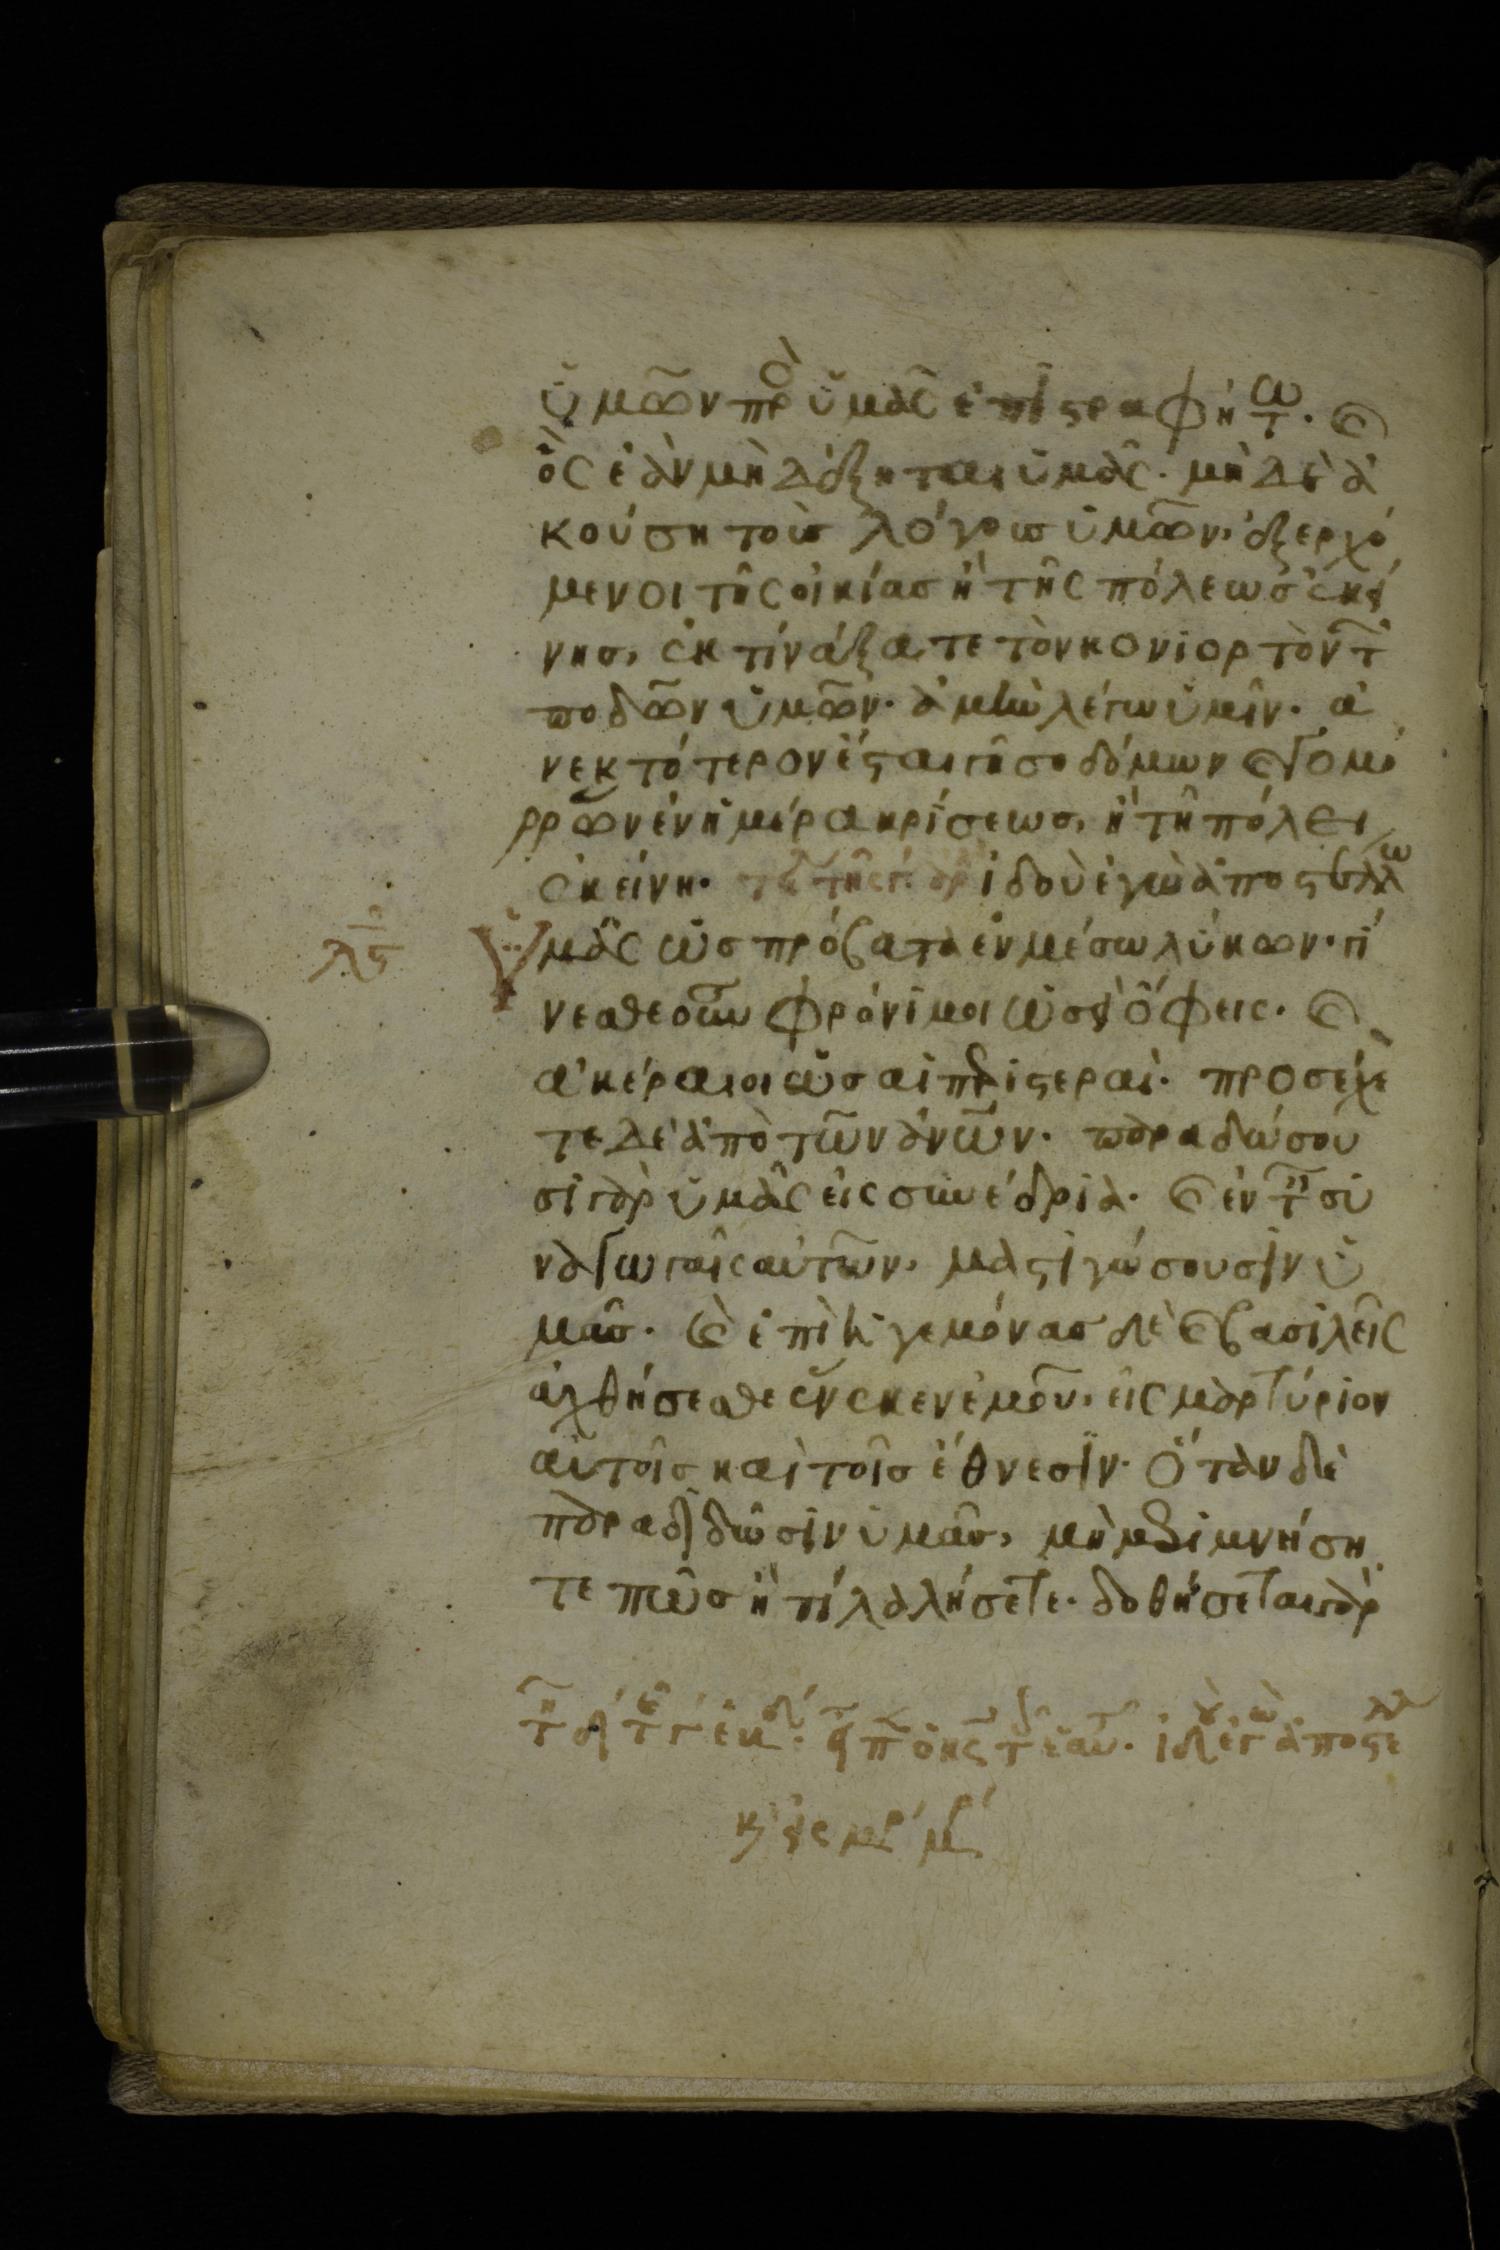 ὑμῶν πρὸ ὑμᾶς ἐπιστραφήτω. καὶ
ὃς ἐὰν μὴ δέξηται ὑμᾶς. μηδὲ ἀ
κούση τοὺς λόγους ὑμῶν, ἐξερχό
μενοι τῆς οἰκίας ἢ τῆς πόλεως ἐκεί
νης, ἐκτινάξατε τὸν κονιορτὸν τ
ποδῶν ὑμῶν. ἀμὴν λέγω ὑμῖν. ἀ
νεκτότερον ἔσται γῆ σοδόμων καὶ γομό
ρρων ἐν ἡμέρα κρίσεως, ἢ τῆ πόλει
ἐκείνη. ἰδοὺ ἐγὼ ἀποστέλλω
λς ὑμᾶς ὡς πρόβατα ἐν μέσω λύκων. γί
νεσθε οὖν φρόνιμοι ὡς οἱ ὄφεις. καὶ
ἀκέραιοι ὡς αἱ περιστεραί. προσέχε
τε δὲ ἀπὸ τῶν ἀνων. παραδώσου
σι γὰρ ὑμᾶς εἰς συνέδρια. καὶ ἐν τ συ
ναγωγαῖς αὐτῶν, μαστιγώσουσιν ὑ
μᾶς. καὶ ἐπὶ ἡγεμόνας δὲ καὶ βασιλεῖς
ἀχθήσεσθε ἕνεκεν ἐμοῦ, εἰς μαρτύριον
αὐτοῖς καὶ τοῖς ἔθνεσιν. ὅταν δὲ
παραδιδῶσιν ὑμᾶς, μὴ μεριμνήση
τε πῶς ἢ τί λαλήσετε. δοθήσεται γὰρ